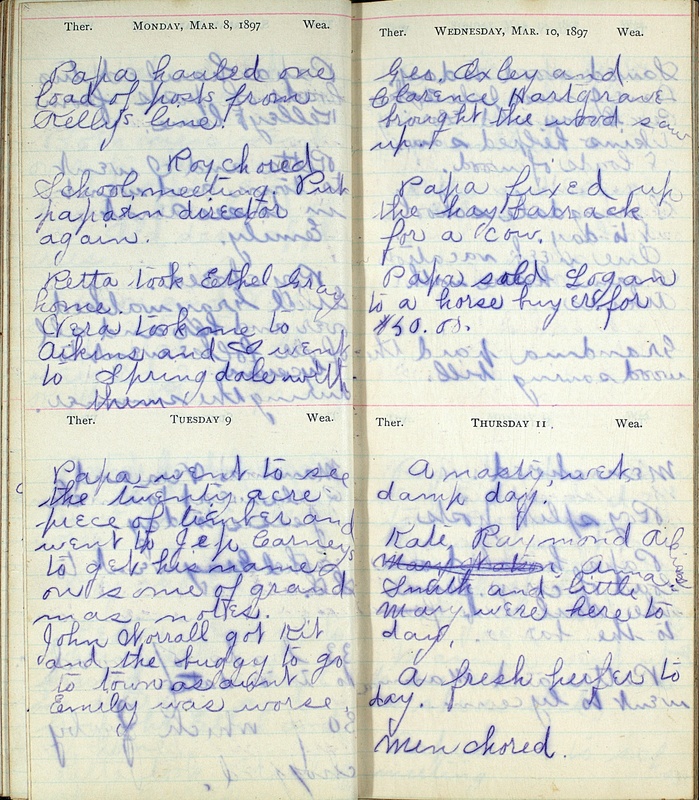 Ther. Monday, Mar. 8, 1897 Wea.
Papa hauled one
load of posts from
Kelly's line.
Roy chored
School meeting. Put
papa in director
again.
Retta took Ethel Gray
home.
Vera took me to
Aikins and I went
to Springdale with
them
Ther. Tuesday 9 Wea.
Papa went to see
the twenty acre
piece of timber and
went to Jep Carney's
to get his name
on some of grand
mas notes.
John Worrall got Kit
and the buggy to go
to town as aunt
Emily was worse.
Ther. Wednesday, Mar. 10, 1897 Wea.
Geo. Oxley and
Clarence Hartgrave
brought the wood saw
up
Papa fixed up
the hay barrack
for a cow.
Papa sold Logan
to a horse buyer for
$50.00.
Ther. Thursday 11 Wea.
A nasty, wet
damp day.
Kate Raymond
Anna
Smith and little
Mary were here to
day.
A fresh heifer to
day.
Men chored.